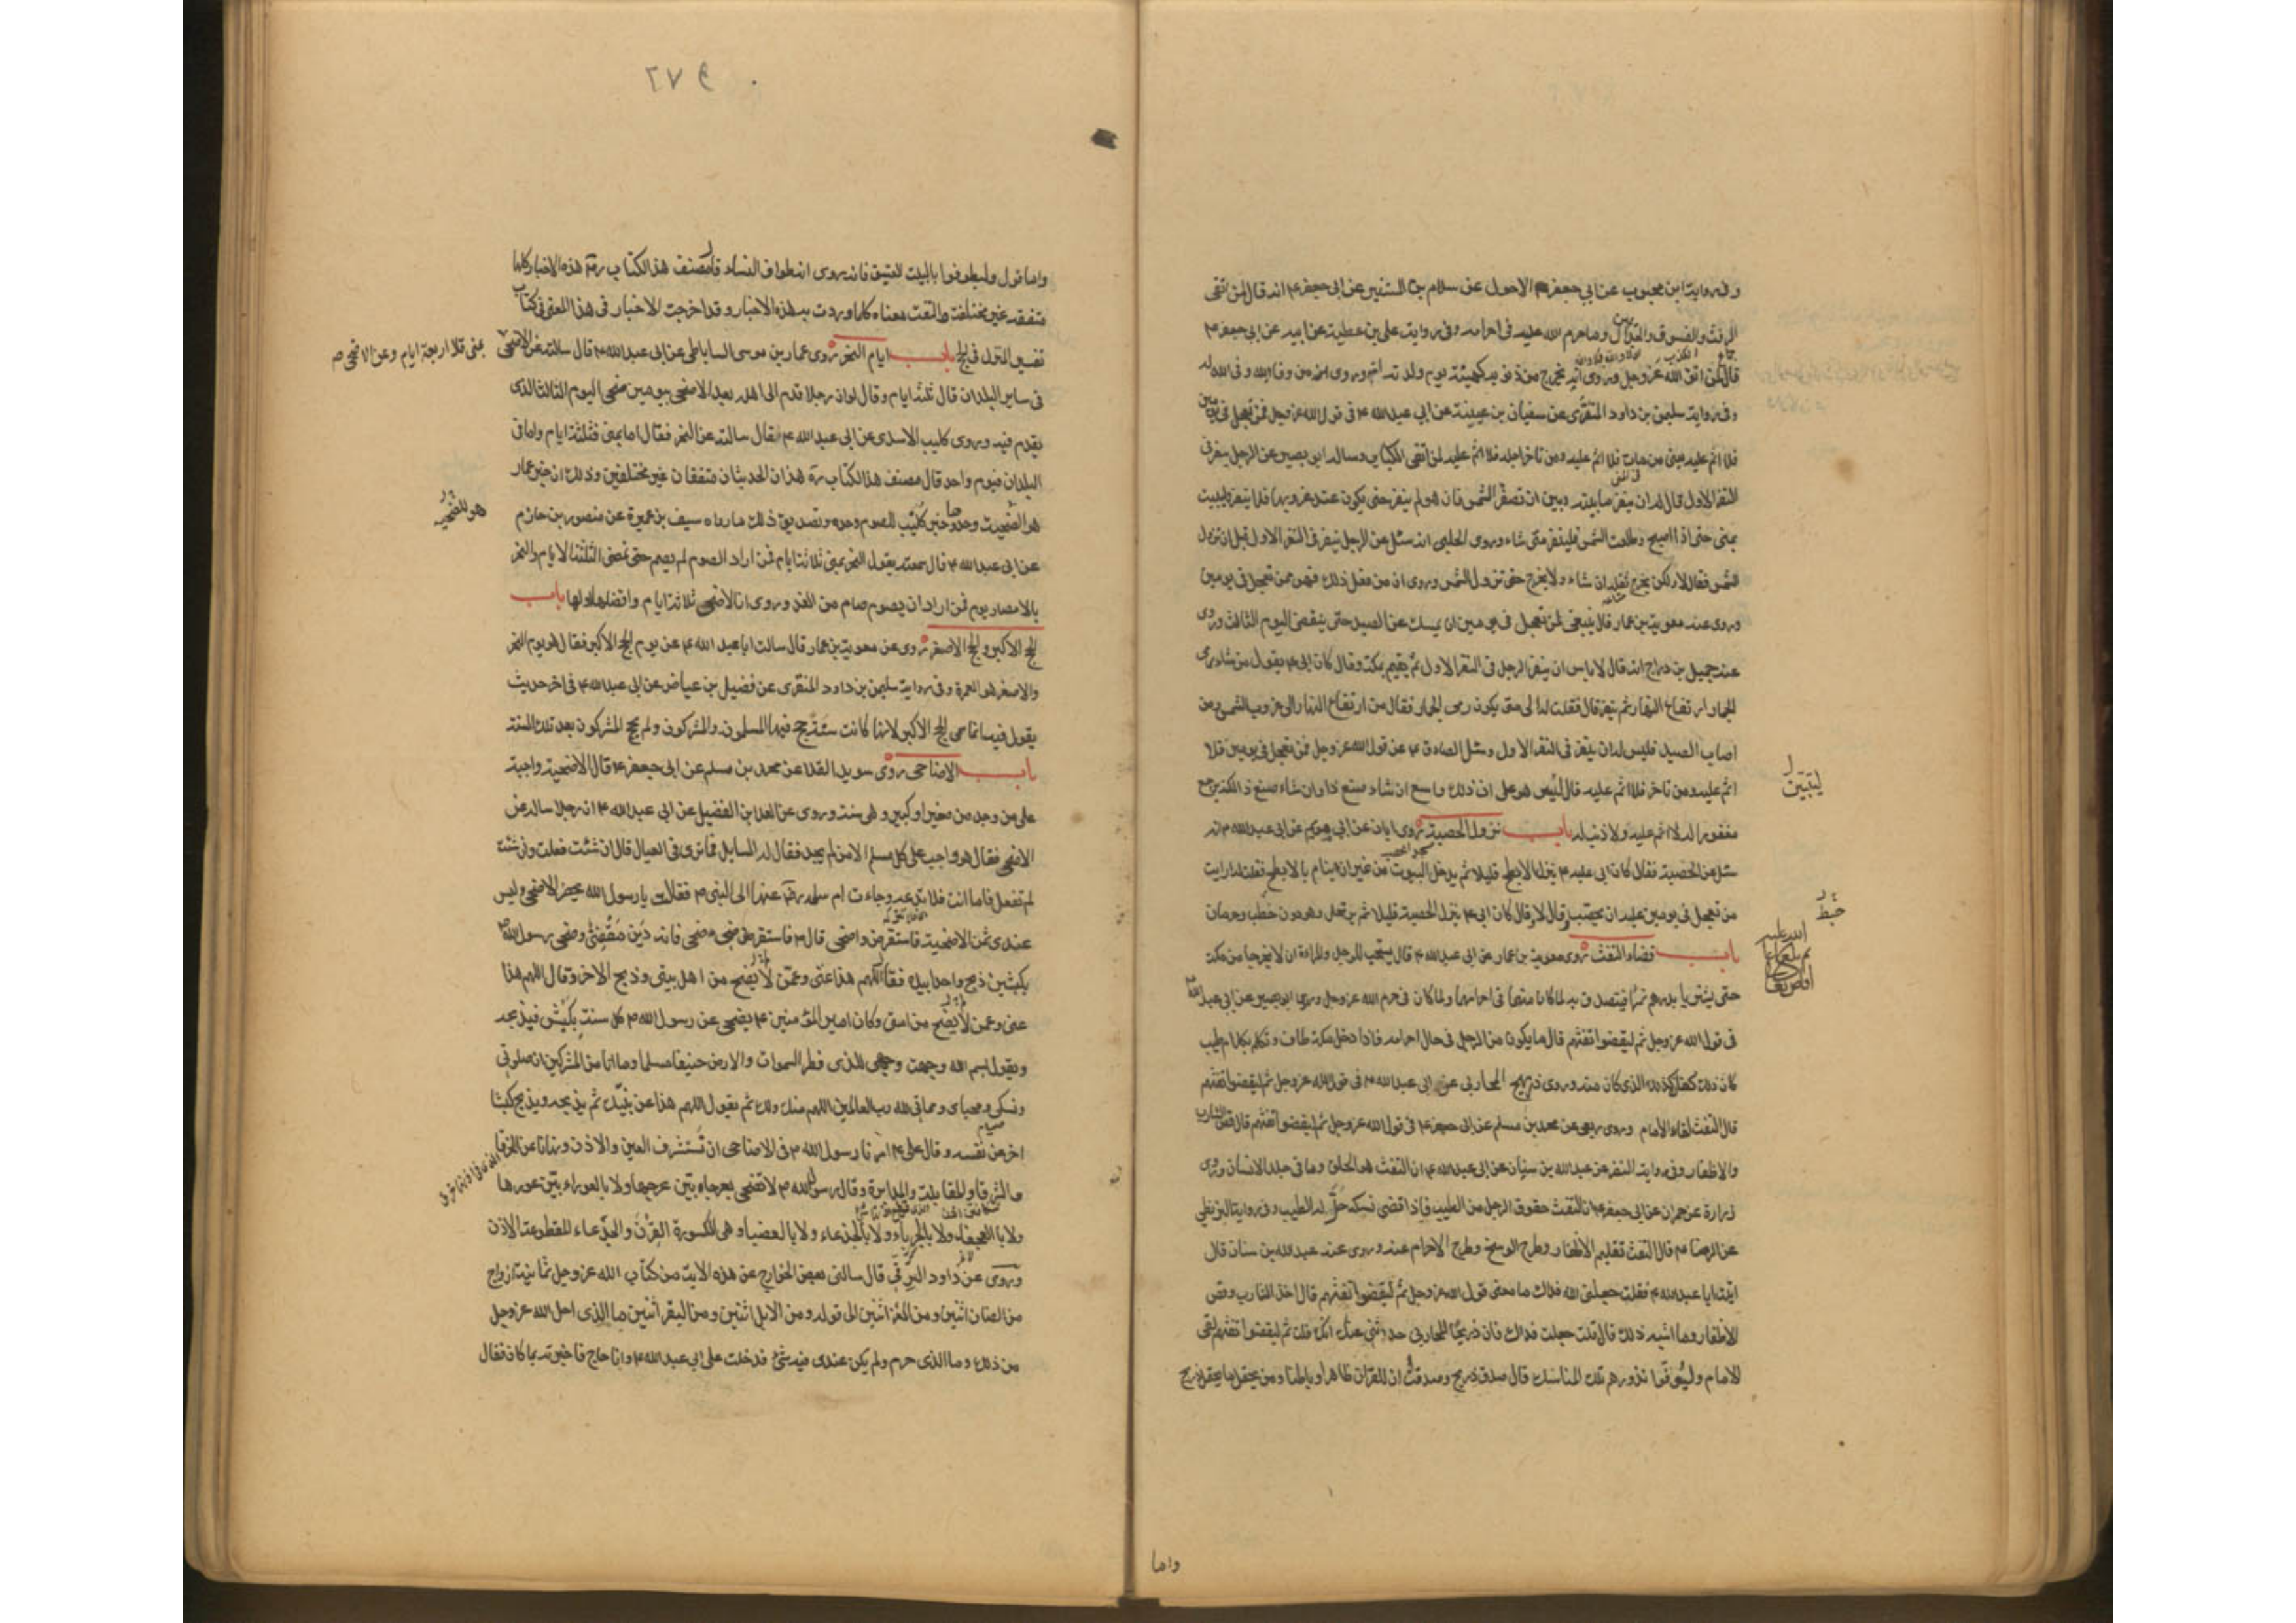 وفي رواية ابن محبوب عن ابي جعفر الاحول عن سلام بن المستنير عن ابي جعفر ع انه قال لمن اتقى
الرفث والفسوق والجدال وما حرم الله عليه في احرامه وفي رواية علي بن عطية عن ابيه عن ابي جعفر ع
قال لمن اتقى الله عز وجل وروى انه يخرج من ذنوبه كهيئته يوم ولدته امه وروى من وفى لله وفى الله له
وفي رواية سليمن بن داود المنقرى عن سفيان بن عيينة عن ابي عبد الله ع في قول الله عز وجل فمن تعجل في يومين
فلا اثم عليه يعنى من مات فلا اثم عليه ومن تاخر اجله فلا اثم عليه لمن اتقى الكباير وساله ابو بصير عن الرجل ينفر في
النفر الاول قال له ان ينفر ما بينه وبين ان تصفر الشمس فان هو لم ينفر حتى يكون عند غروبها فلا ينفر وليبت
بمنى حتى اذا اصبح وطلعت الشمس فلينفر متى شاء وروى الحلبى انه سئل عن الرجل ينفر في النفر الاول قبل ان تزول
الشمس فقال لا ولكن يخرج ثقله ان شاء ولا يخرج حتى تزول الشمس وروى ان من فعل ذلك فهو ممن تعجل في يومين
وروى عنه معوية بن عمار قال ينبغى لمن تعجل في يومين ان يمسك عن الصيد حتى ينقضى اليوم الثالث وروى
عنه جميل بن دراج انه قال لا باس ان ينفر الرجل في النفر الاول ثم يقيم بمكة وقال كان ابى ع يقول من شاء رمى
الجمار ارتفاع النهار ثم ينفر قال فقلت له الى متى يكون رمى الجمار فقال من ارتفاع النهار الى غروب الشمس ومن
اصاب الصيد فليس له ان ينفر في النفر الاول وسئل الصادق ع عن قول الله عز وجل فمن تعجل في يومين فلا
اثم عليه ومن تاخر فلا اثم عليه قال ليس هو على ان ذلك واسع ان شاء صنع ذا وان شاء صنع ذا لكنه يرجع
ليبين
مغفورا له لا اثم عليه ولا ذنب له باب نزول الحصبة روى ابان عن ابي مريم عن ابي عبد الله ع انه
سئل عن الحصبة فقال كان ابى عليه ع ينزل الابطح قليلا ثم يدخل البيوت من غير ان ينام بالابطح فقلت له ارايت
من تعجل في يومين عليه ان يحصب قال لا وقال كان ابى ع ينزل الحصبة قليلا ثم يرتحل وهو دون خبط وحرمان
خبط
باب قضاء التفث روى معوية بن عمار عن ابى عبد الله ع قال يستحب للرجل والمراة ان لا يخرجا من مكة
حتى يشتريا بدرهم تمرا فيتصدقا به لما كان منهما في احرامهما ولما كان في حرم الله عز وجل وروى ابو بصير عن ابى عبد الله
في قول الله عز وجل ثم ليقضوا تفثهم قال ما يكون من الرجل في حال احرامه فاذا دخل مكة طاف وتكلم بكلام طيب
كان ذلك كفارة لذلك الذى كان منه وروى ذريح المحاربى عن ابى عبد الله ع في قول الله عز وجل ثم ليقضوا تفثهم
قال التفث لقاء الامام وروى ربعى عن محمد بن مسلم عن ابى جعفر ع في قول الله عز وجل ثم ليقضوا تفثهم قال قص الشارب
والاظفار وفي رواية النضر عن عبد الله بن سنان عن ابى عبد الله ع ان التفث هو الحلق وما في جلد الانسان وروى
زرارة عن حمران عن ابى جعفر ع ان التفث حفوف الرجل من الطيب فاذا قضى نسكه حل له الطيب وفي رواية البزنطى
عن الرضا ع قال التفث تقليم الاظفار وطرح الوسخ وطرح الاحرام عنه وروى عنه عبد الله بن سنان قال
اتيت ابا عبد الله ع فقلت جعلنى الله فداك ما معنى قول الله عز وجل ثم ليقضوا تفثهم قال اخذ الشارب وقص
الاظفار وما اشبه ذلك قال قلت جعلت فداك فان ذريحا المحاربى حدثنى عنك انك قلت ثم ليقضوا تفثهم لقى
الامام وليوفوا نذورهم تلك المناسك قال صدق ذريح وصدقت ان للقران ظاهرا وباطنا ومن يحتمل ما يحتمل ذريح
واما
٢٧٩
واما قول وليطوفوا بالبيت العتيق فانه روى انه طواف النساء قال مصنف هذا الكتاب رحمه هذه الاخبار كلها
متفقة غير مختلفة والتفث معناه كل ما وردت به هذه الاخبار وقد اخرجت الاخبار في هذا المعنى في كتاب
تفسير المنزل في الحج باب ايام النحر روى عمار بن موسى الساباطى عن ابى عبد الله ع قال سالته عن الاضحى
بمنى قال اربعة ايام وعن الاضحى صح
في ساير البلدان قال ثلثة ايام وقال لو ان رجلا قدم الى اهله بعد الاضحى بيومين ضحى اليوم الثالث الذى
يقدم فيه وروى كليب الاسدى عن ابى عبد الله ع قال سالته عن النحر فقال اما بمنى فثلثة ايام واما في
البلدان فيوم واحد قال مصنف هذا الكتاب ره هذان الحديثان متفقان غير مختلفين وذلك ان خبر عمار
هو للضحية وحدها وخبر كليب للصوم وحده وتصديق ذلك ما رواه سيف بن عميرة عن منصور بن حازم
هو للضحية
عن ابى عبد الله ع قال سمعته يقول النحر بمنى ثلاثة ايام فمن اراد الصوم لم يصم حتى تمضى الثلثة الايام والنحر
بالامصار يوم فمن اراد ان يصوم صام من الغد وروى ان الاضحى ثلاثة ايام وافضلها اولها باب
الحج الاكبر والحج الاصغر روى عن معوية بن عمار قال سالت ابا عبد الله ع عن يوم الحج الاكبر فقال هو يوم النحر
والاصغر هو العمرة وفي رواية سليمن بن داود المنقرى عن فضيل بن عياض عن ابى عبد الله ع في اخر حديث
يقول فيه انما سمى الحج الاكبر لانها كانت سنة حج فيها المسلمون والمشركون ولم يحج المشركون بعد تلك السنة
باب الاضاحى روى سويد القلا عن محمد بن مسلم عن ابى جعفر ع قال الاضحية واجبة
على من وجد من صغير او كبير وهى سنة وروى عن العلا بن الفضيل عن ابى عبد الله ع ان رجلا ساله عن
الاضحى فقال هو واجب على كل مسلم الا من لم يجد فقال له السايل فما ترى في العيال قال ان شئت فعلت وان شئت
لم تفعل فاما انت فلا تدعه وجاءت ام سلمة رضى عنها الى النبى ص فقالت يا رسول الله يحضر الاضحى وليس
عندى ثمن الاضحية فاستقرض واضحى قال فاستقرضى وضحى فانه دين مقضى وضحى رسول الله ص
بكبشين ذبح واحدا بيده فقال اللهم هذا عنى وعمن لم يضح من اهل بيتى وذبح الاخر وقال اللهم هذا
عنى وعمن لم يضح من امتى وكان امير المؤمنين ع يضحى عن رسول الله ص كل سنة بكبش فيذبحه
ويقول بسم الله وجهت وجهى للذى فطر السموات والارض حنيفا مسلما وما انا من المشركين ان صلوتى
ونسكى ومحياى ومماتى لله رب العالمين اللهم منك ولك ثم يقول اللهم هذا عن نبيك ثم يذبحه ويذبح كبشا
اخر عن نفسه وقال على ع امرنا رسول الله ص في الاضاحى ان تستشرف العين والاذن ونهانا عن الخرقا
والشرقا والمقابلة والمدابرة وقال رسول الله ص لا تضحى بعرجاء بين عرجها ولا بالعوراء بين عورها
ولا بالعجفاء ولا بالجرباء ولا بالجذعاء ولا بالعضباء وهى المكسورة القرن والجذعاء المقطوعة الاذن
وروى عن داود الرقى قال سالنى بعض الخوارج عن هذه الاية من كتاب الله عز وجل ثمانية ازواج
من الضان اثنين ومن المعز اثنين الى قوله ومن الابل اثنين ومن البقر اثنين ما الذى احل الله عز وجل
من ذلك وما الذى حرم ولم يكن عندى فيه شئ فدخلت على ابى عبد الله ع وانا حاج فاخبرته بما كان فقال